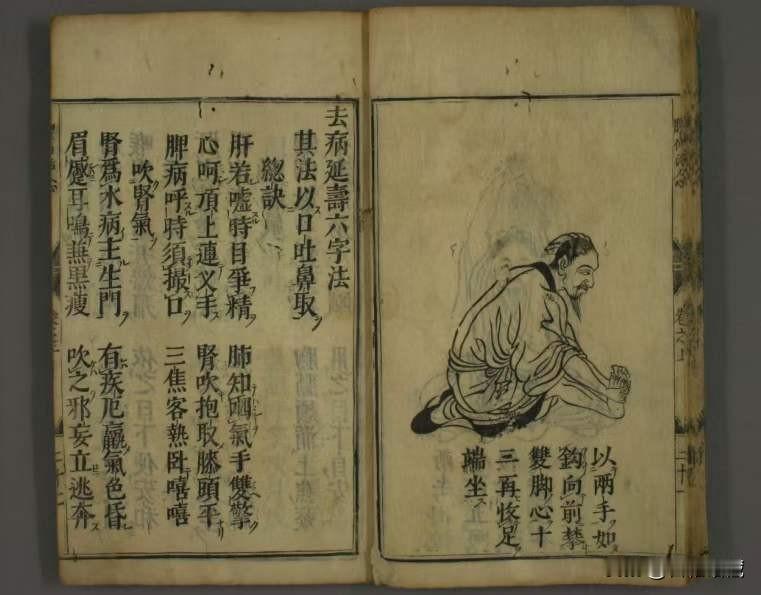 以兩手如
鈎向前攀
雙脚心十
三再收足
端坐
去病延壽六字法
其法以口吐鼻取
總訣
肝若噓時目爭精 肺知呬氣手雙擎
心呵頂上連义手 腎吹抱取膝頭平
脾病呼時須撮口 三焦客熱臥嘻嘻
吹腎氣
腎爲水病主生門 有疾尫羸氣色昏
眉蹙耳鳴兼黑瘦 吹之邪妄立逃奔